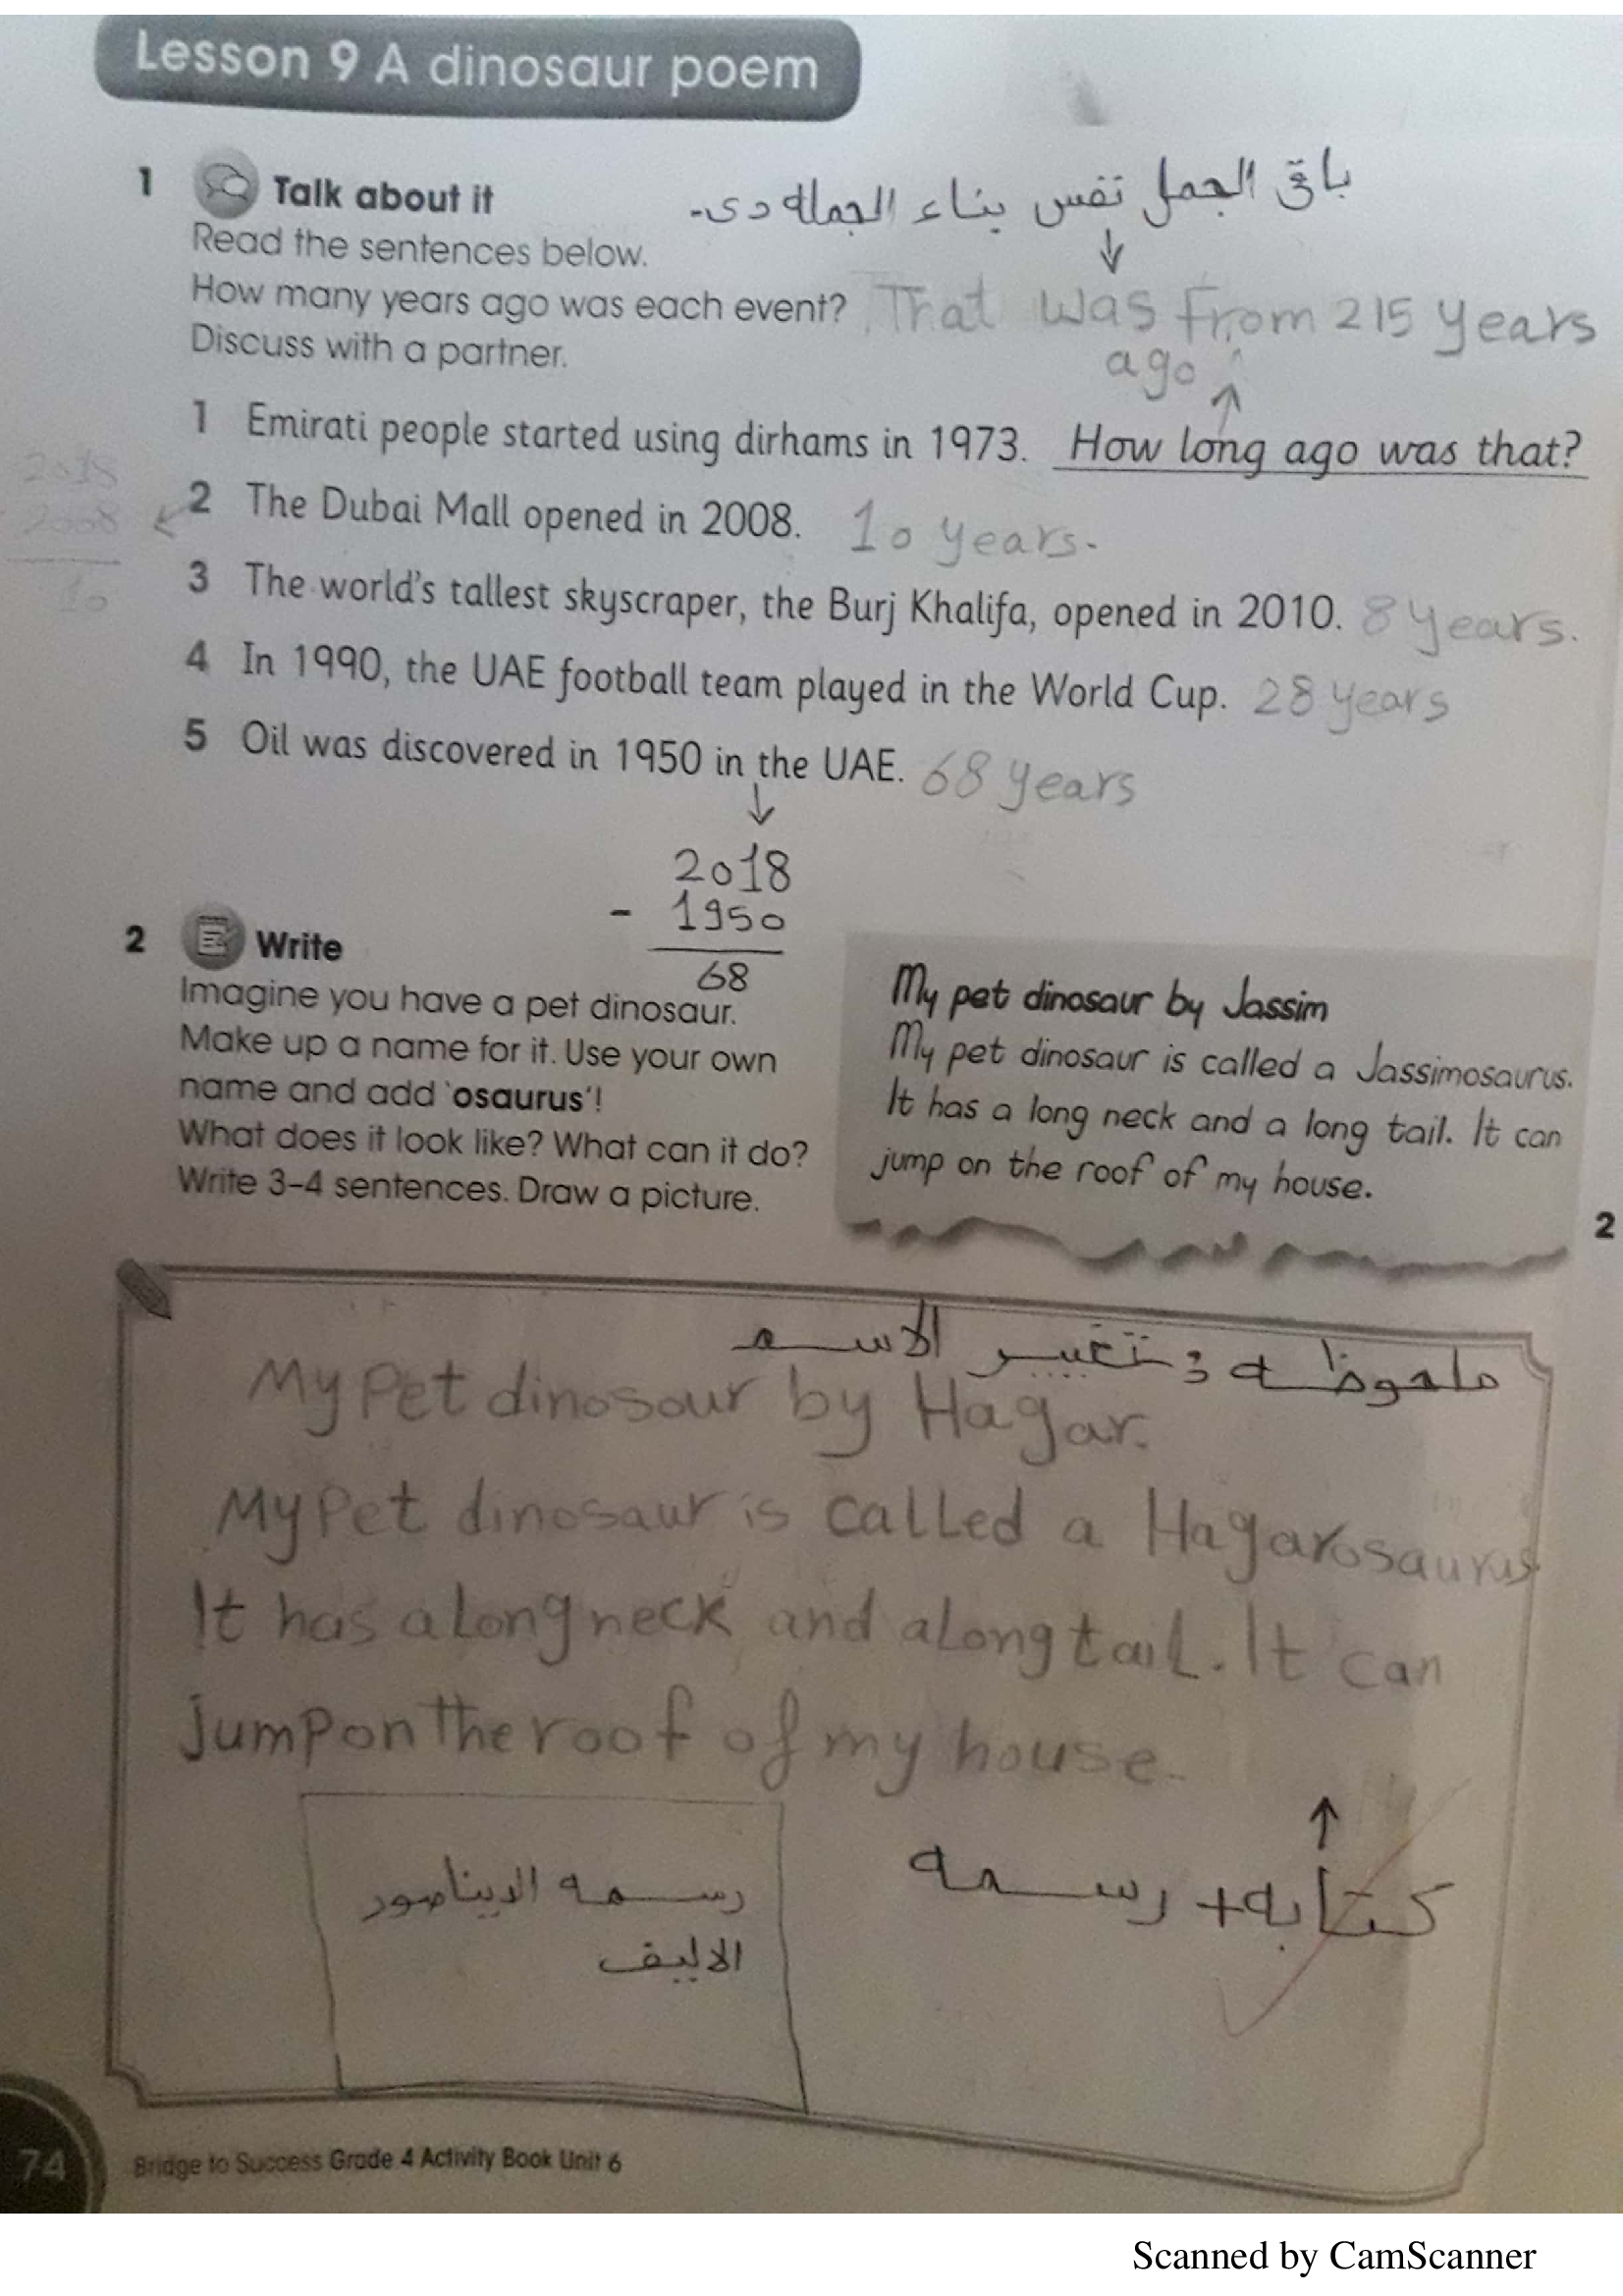 Lesson 9 A dinosaur poem
1 Talk about it
باقى الجمل نفس بناء الجملة دى-
Read the sentences below.
How many years ago was each event? That was from 215 years
ago
Discuss with a partner.
1 Emirati people started using dirhams in 1973. How long ago was that?
2 The Dubai Mall opened in 2008. 10 years.
2018
2008
10
3 The world's tallest skyscraper, the Burj Khalifa, opened in 2010. 8 years.
4 In 1990, the UAE football team played in the World Cup. 28 years
5 Oil was discovered in 1950 in the UAE. 68 years
2018
- 1950
68
2 Write
Imagine you have a pet dinosaur.
Make up a name for it. Use your own
name and add 'osaurus'!
What does it look like? What can it do?
Write 3–4 sentences. Draw a picture.
My pet dinosaur by Jassim
My pet dinosaur is called a Jassimosaurus.
It has a long neck and a long tail. It can
jump on the roof of my house.
2
ملحوظه و تغيير الاسم
My Pet dinosour by Hagar.
My Pet dinosaur is called a Hagarosaurus
It has a long neck and a long tail. It can
Jump on the roof of my house.
كتابه + رسمه
رسمه الديناصور
الاليف
74
Bridge to Success Grade 4 Activity Book Unit 6
Scanned by CamScanner